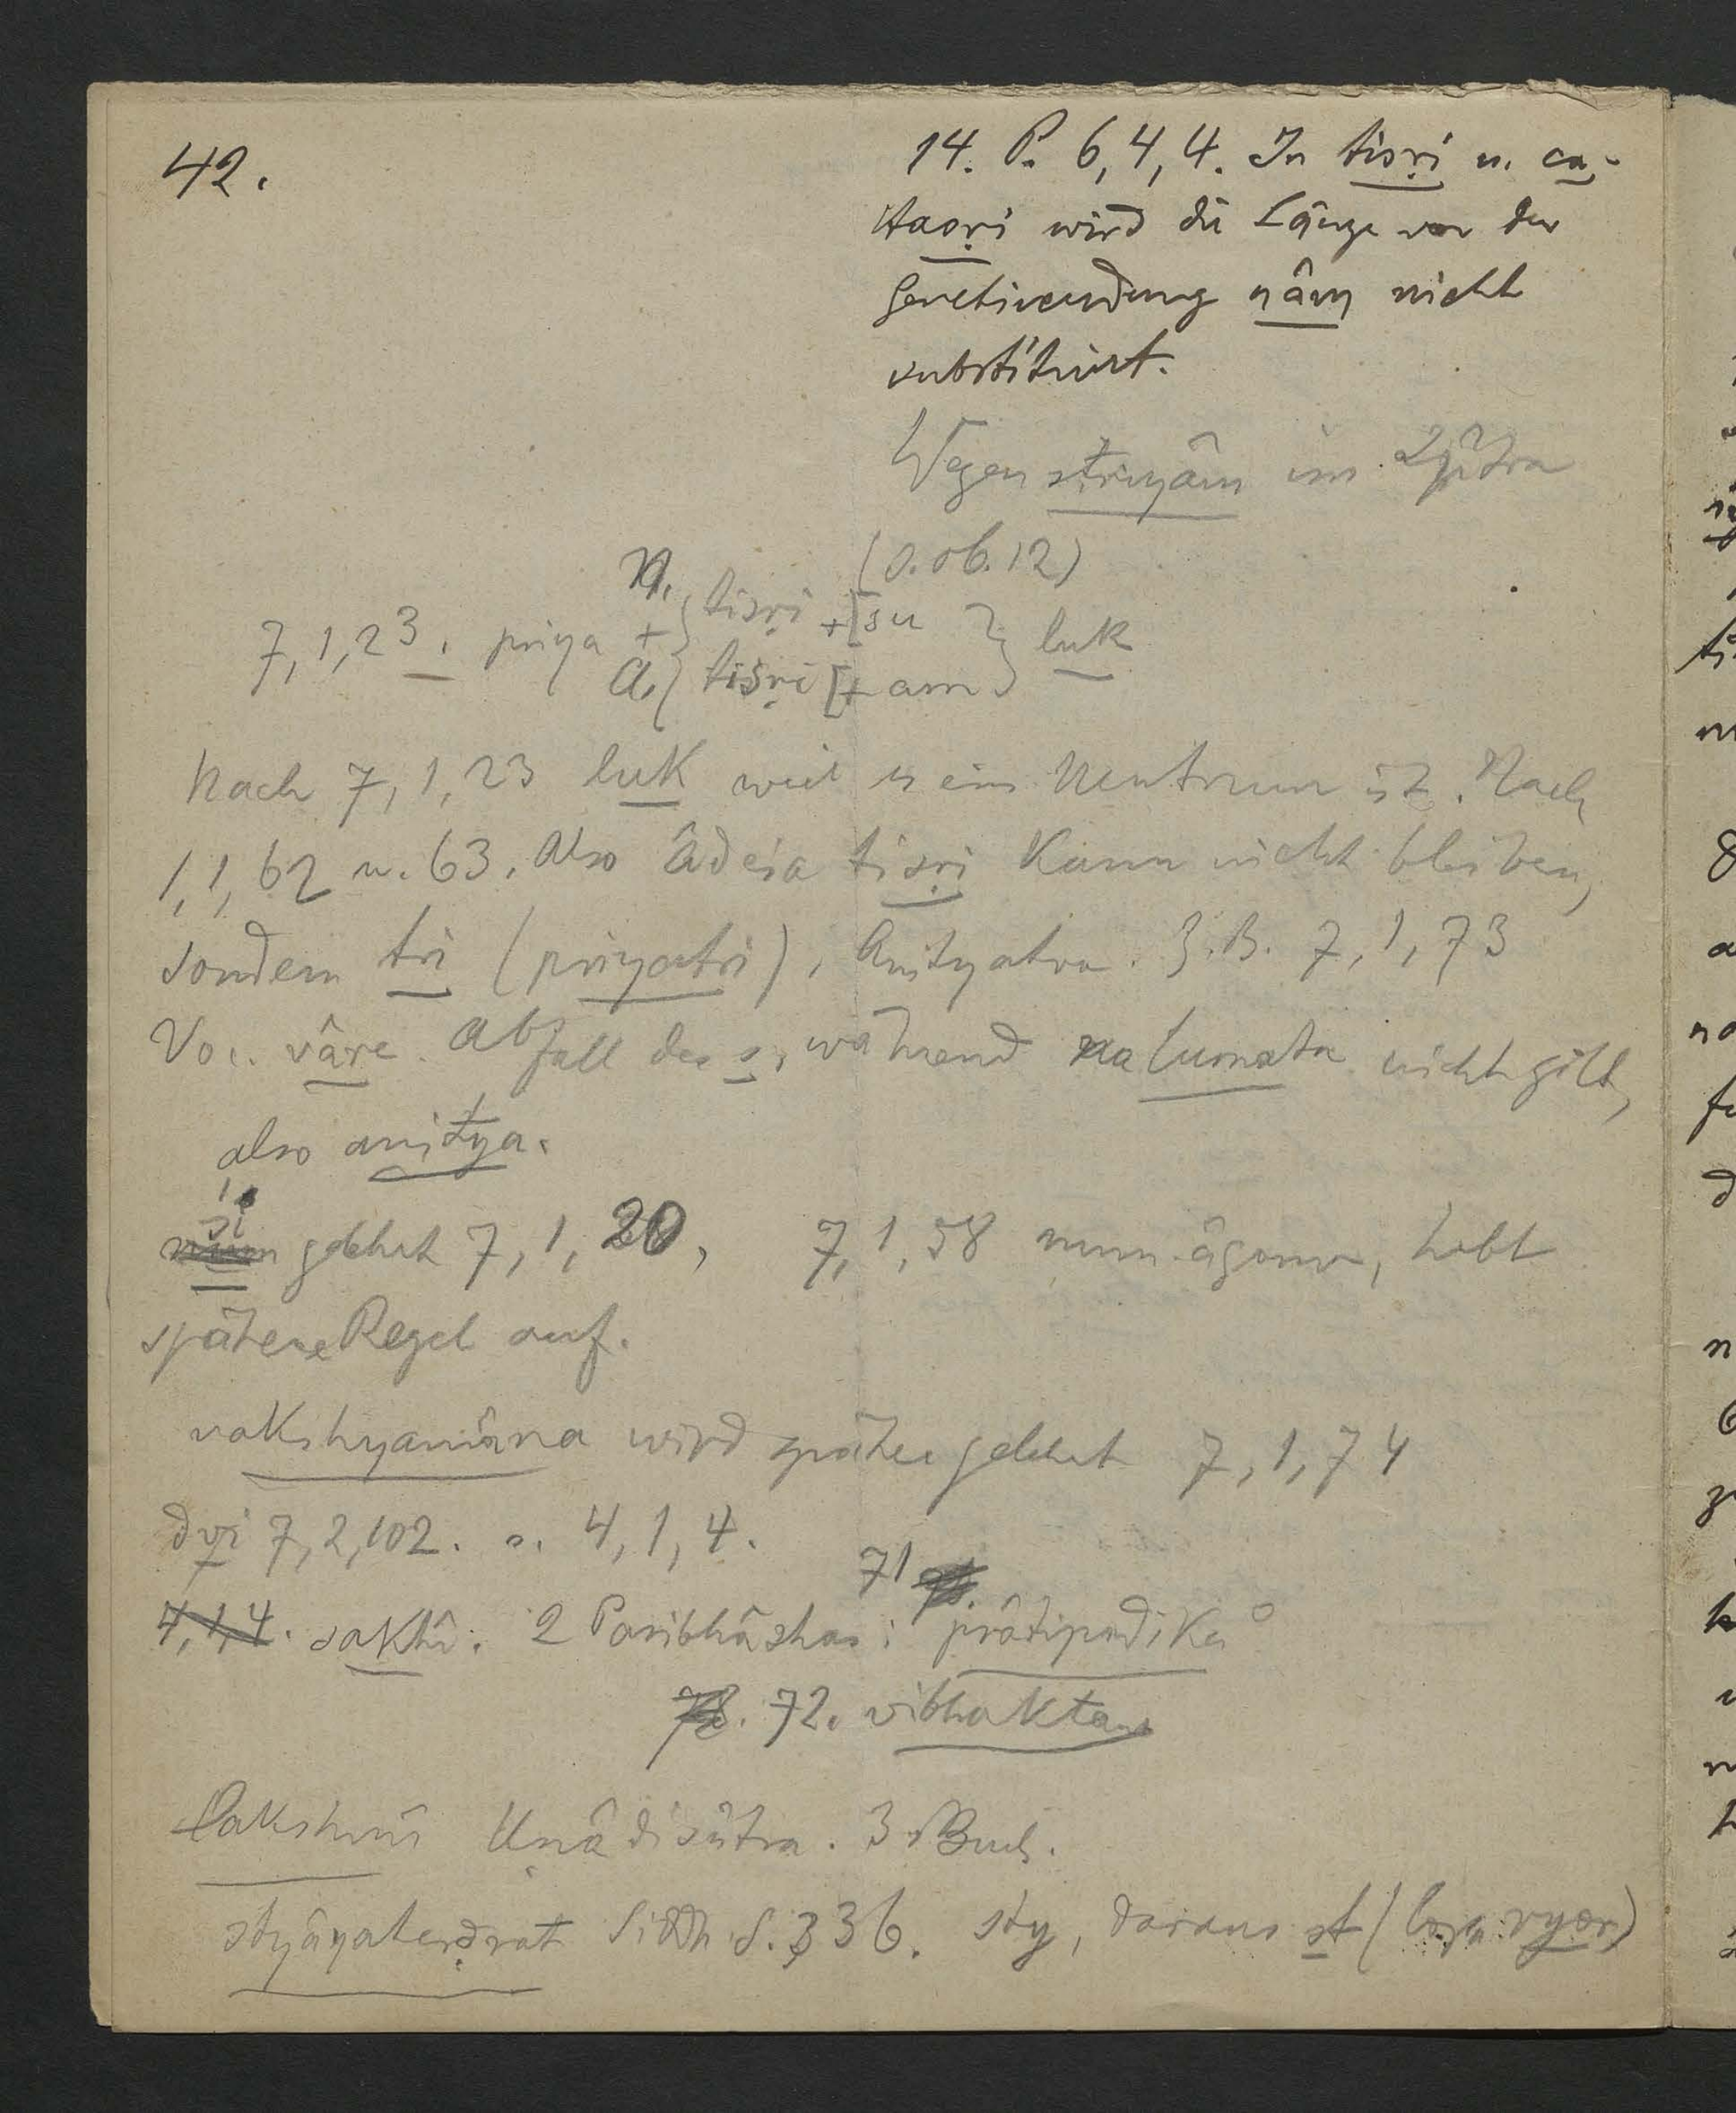 42.
14. P. 6,4,4. In tisṛi u. ca-
tasṛi wird die Länge vor der
Genetivendung nâm nicht
substituirt.
Wegen striyâm im Sûtra
(s. ob. 12)
N. tisṛi + [su
7,1,23. priya + } luk
A. tisṛi [+ am
Nach 7,1,23 luk weil es ein Neutrum ist. Nach
1,1,62 u. 63. Also âdeśa tisṛi kann nicht bleiben,
sondern tri (priyatri), Anityatva. Z.B. 7,1,73
Voc. vâre. Abfall des s, während na lumatâ nicht gilt,
also anitya.
śi
num gelehrt 7,1,20, 7,1,58 num-âgama, hebt
spätere Regel auf.
vakshyamâna wird später gelehrt 7,1,74
dvi 7,2,102. s. 4,1,4.
71
4,1,4. sakhî. 2 Paribhâshas: prâtipadika°
72. vibhaktau
lakshmî Uṇâdisûtra. 3 Buch.
styâyaterḍraṭ Siddh. S. 336. sty, daraus st (lopo vyor)